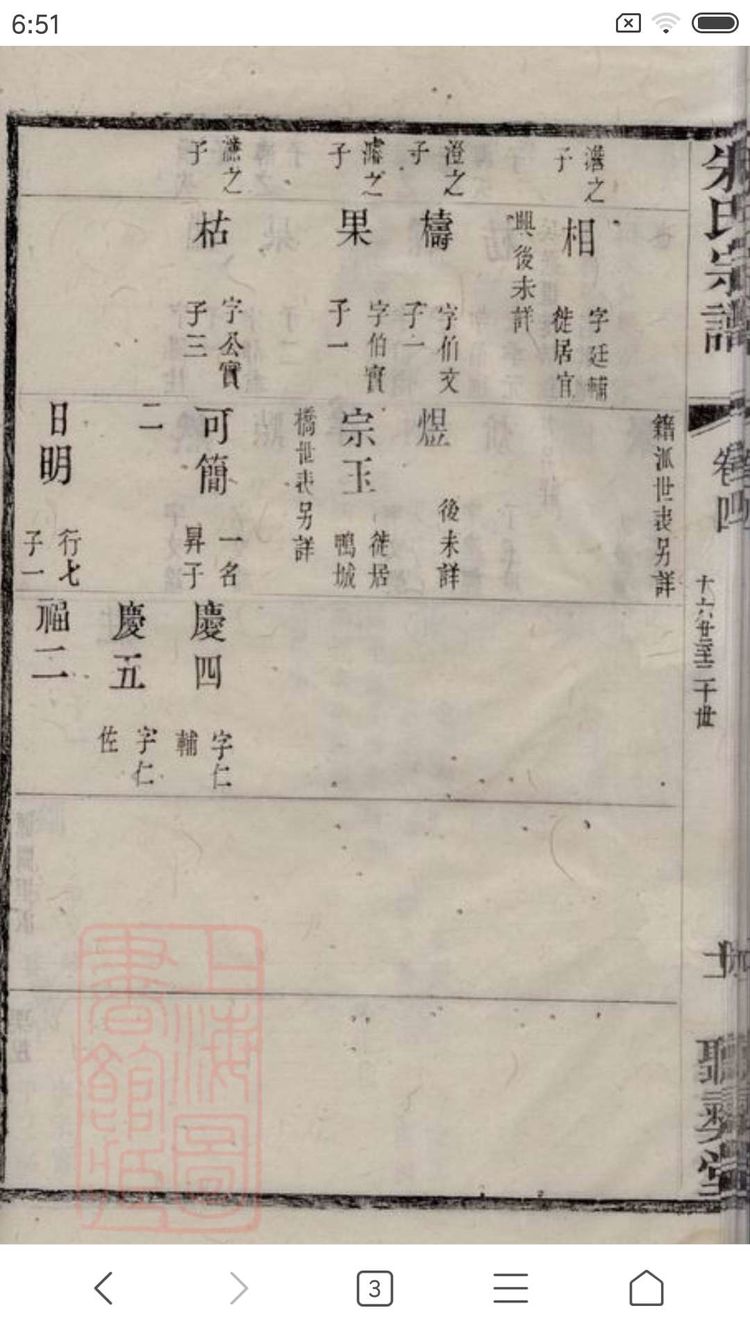 6:51
朱氏宗譜
卷四
十六世至二十世
聽彝堂
之
子
相
字廷輔
徙居宜
興後未詳
籍派世表另詳
澄之
子
檮
字伯文
子一
煜
後未詳
濬之
子
果
字伯實
子一
宗玉
徙居
鴨城
橋世表另詳
之
子
枯
字公實
子三
可簡
一名
昇子
二
慶四
字仁
輔
慶五
字仁
佐
日明
行七
子一
福二
上海圖
書館藏
3